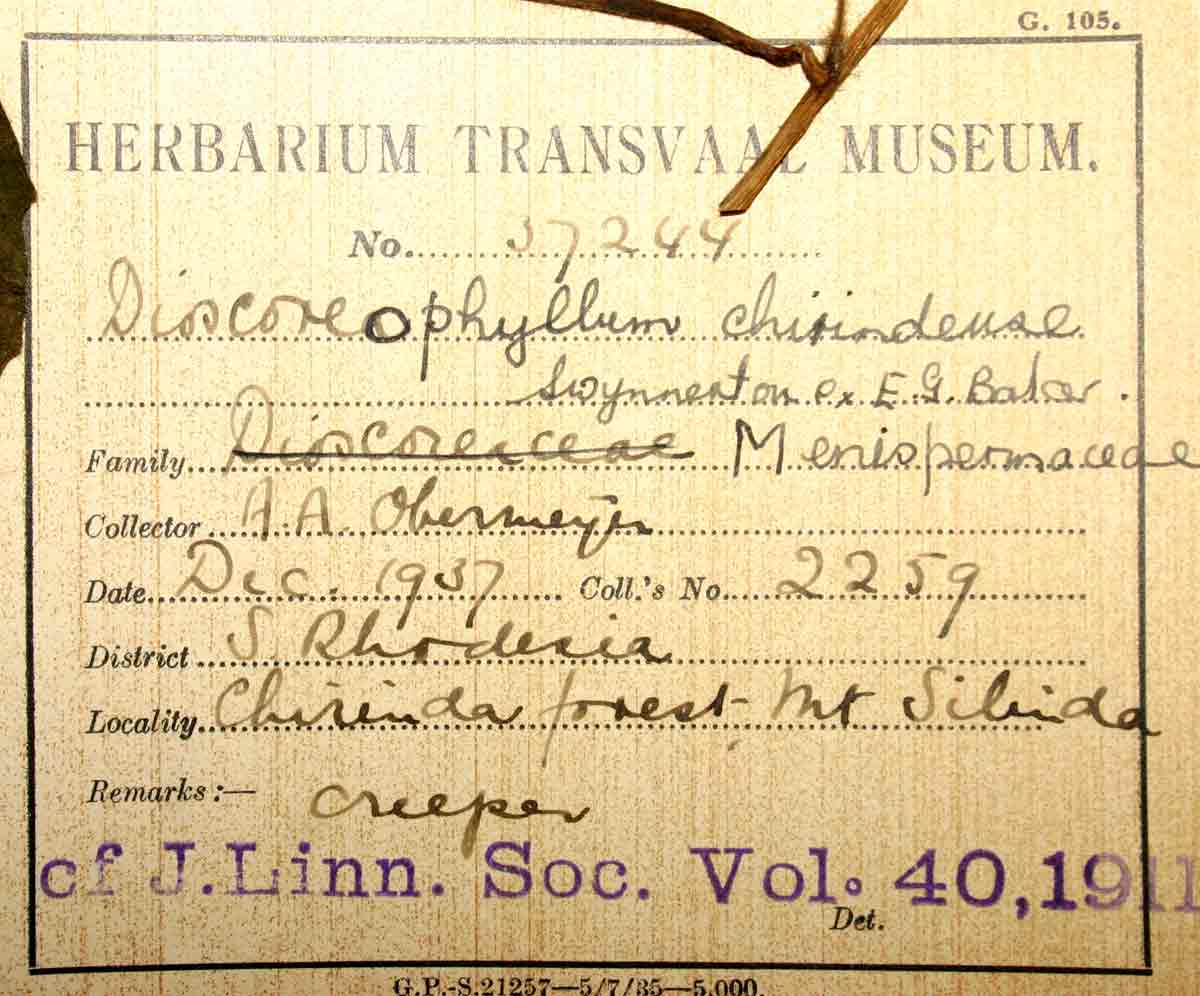 G. 105.
HERBARIUM TRANSVAAL MUSEUM.
No. 37244
Dioscoreophyllum chirindense
Swynnerton ex E.G. Baker.
Family Dioscoreaceae Menispermaceae
Collector A.A. Obermeyer
Date Dec. 1937 Coll.'s No. 2259
District S. Rhodesia
Locality Chirinda forest - Mt Silinda
Remarks :— creeper
cf J.Linn. Soc. Vol. 40,1911
Det.
G.P.-S.21257—5/7/35—5,000.